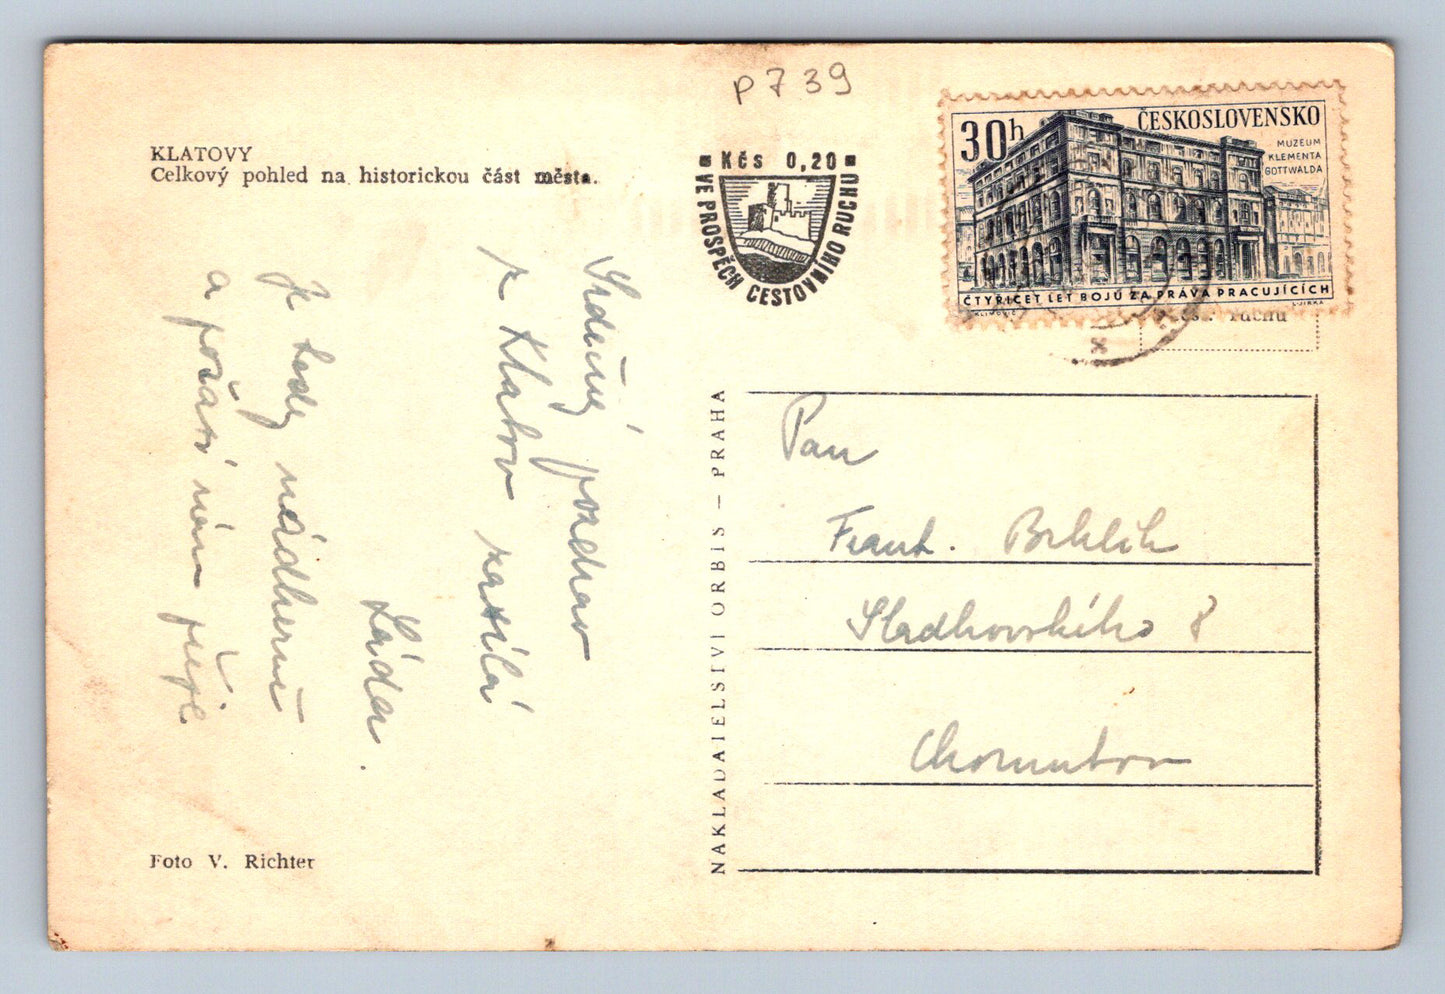 P739
KLATOVY
Celkový pohled na historickou část města.
Kčs 0,20
VE PROSPĚCH CESTOVNÍHO RUCHU
30h
ČESKOSLOVENSKO
MUZEUM
KLEMENTA
GOTTWALDA
ČTYŘICET LET BOJŮ ZA PRÁVA PRACUJÍCÍCH
ruchu
Srdečný pozdrav
z Klatov zasílá
Láďa.
Je tady nádherně
a počasí nám přeje
NAKLADATELSTVÍ ORBIS – PRAHA
Pan
Frant. Brklík
Sladkovského 8
Chomutov
Foto V. Richter